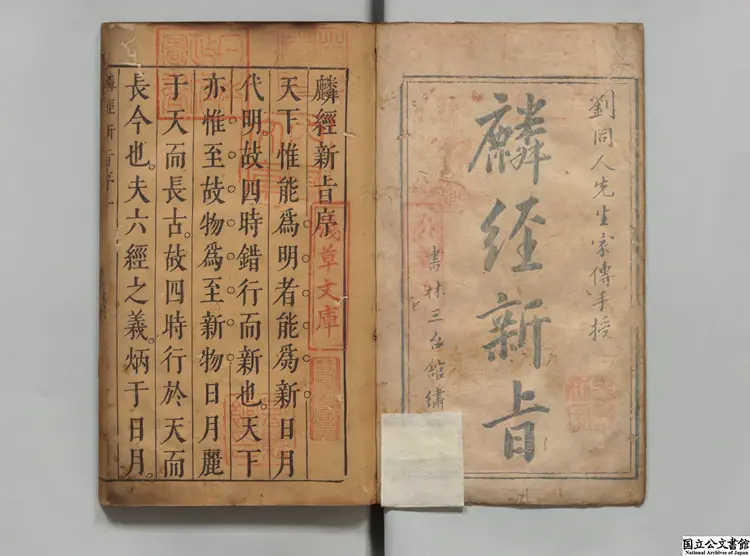 劉同人先生家傳手授
麟經新旨
書林三台館繡
麟經新旨序
天下惟能爲明者能爲新日月
代明故四時錯行而新也天下
亦惟至故物爲至新物日月麗
于天而長古故四時行於天而
長今也夫六經之義炳于日月
麟經新旨序
淺草文庫
国立公文書館
National Archives of Japan